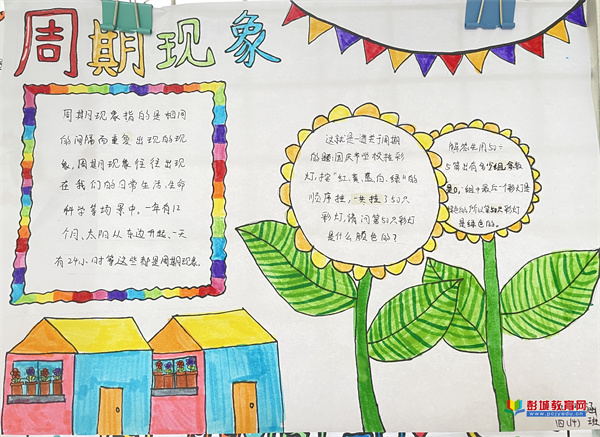 周期现象
周期现象指的是相同
的间隔而重复出现的现
象,周期现象往往出现
在我们的日常生活、生命
科学等场景中。一年有12
个月、太阳从东边升起、一天
有24小时等这些都是周期现象。
这就是一道关于周期
的题:国庆节学校挂彩
灯,按"红、黄、蓝、白、绿"的
顺序挂,一共挂了50只
彩灯,请问第50只彩灯
是什么颜色的?
解答:用50÷
5算出有多少组,余数
是0,组中最后一个彩灯是
绿色的,所以第50只彩灯
是绿色的。
彭城教育网
www.pcjyedu.cn
涵
四(14)班